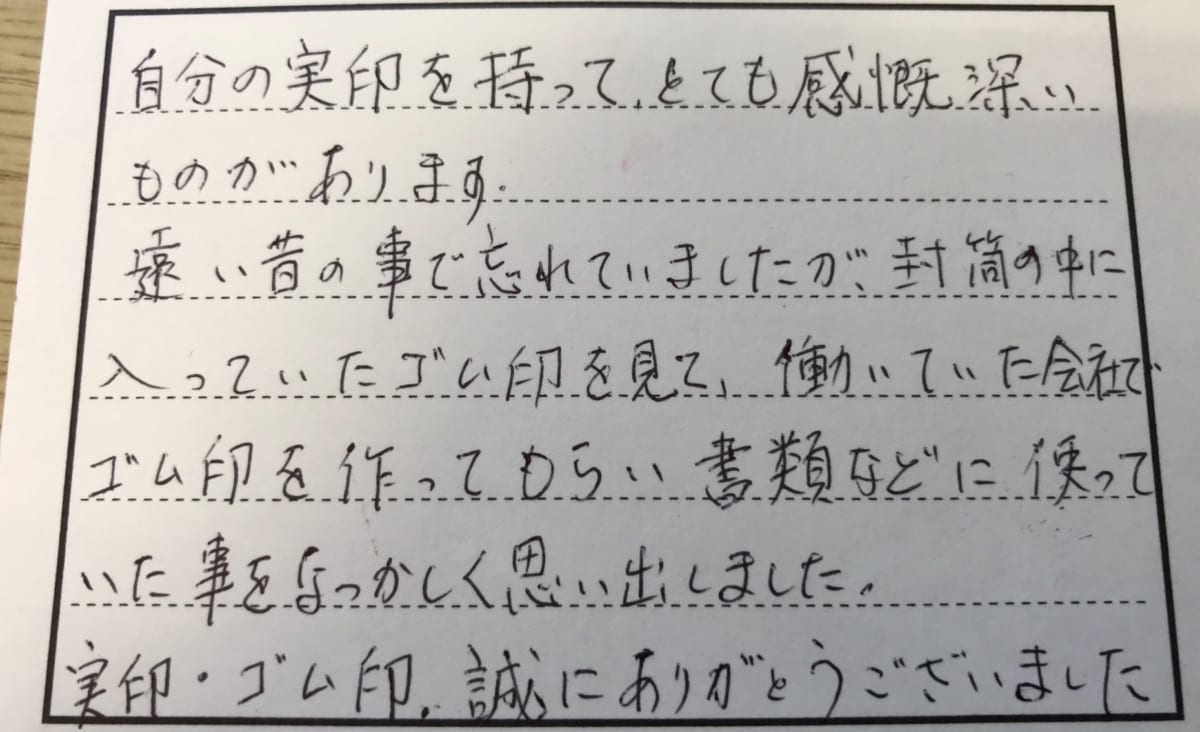 自分の実印を持って、とても感慨深い
ものがあります.
遠い昔の事で忘れていましたが、封筒の中に
入っていたゴム印を見て、働いていた会社で
ゴム印を作ってもらい書類などに使って
いた事をなつかしく思い出しました.
実印・ゴム印.誠にありがとうございました